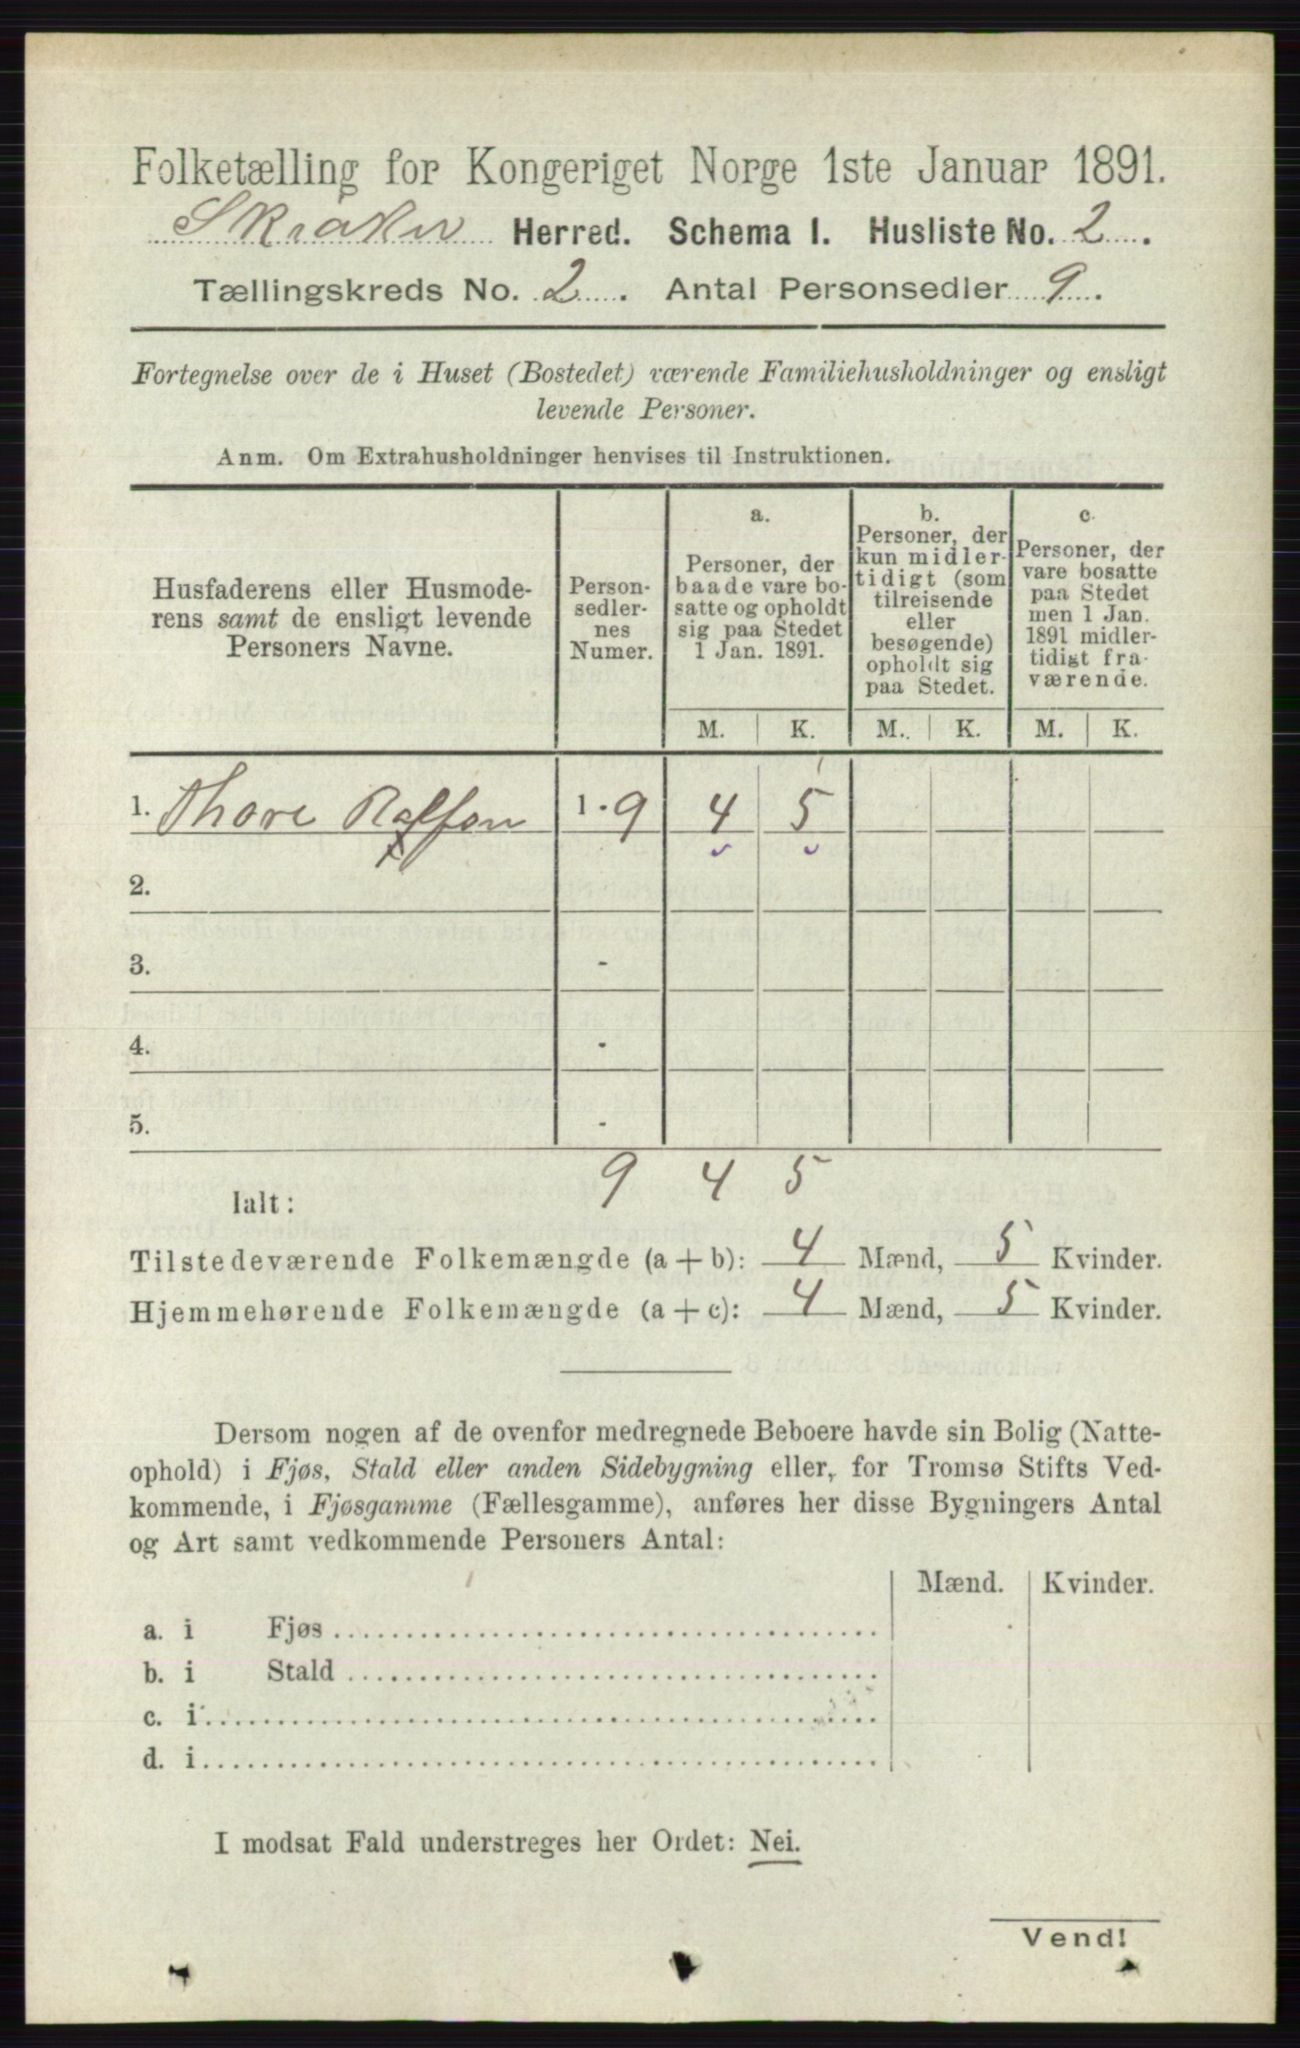 Folketælling for Kongeriget Norge 1ste Januar 1891.
Skiaker Herred. Schema I. Husliste No. 2.
Tællingskreds No. 2. Antal Personsedler 9.
Fortegnelse over de i Huset (Bostedet) værende Familiehusholdninger og ensligt
levende Personer.
Anm. Om Extrahusholdninger henvises til Instruktionen.
Husfaderens eller Husmode-
rens samt de ensligt levende
Personers Navne.
Person-
sedler-
nes
Numer.
a.
Personer, der
baade vare bo-
satte og opholdt
sig paa Stedet
1 Jan. 1891.
b.
Personer, der
kun midler-
tidigt (som
tilreisende
eller
besøgende)
opholdt sig
paa Stedet.
c.
Personer, der
vare bosatte
paa Stedet
men 1 Jan.
1891 midler-
tidigt fra-
værende.
M. K. M. K. M. K.
1. Thore 1-9 4 5
2.
3. -
4. -
5. -
9 4 5
Ialt:
Tilstedeværende Folkemængde (a + b): 4 Mænd, 5 Kvinder.
Hjemmehørende Folkemængde (a + c): 4 Mænd, 5 Kvinder.
Dersom nogen af de ovenfor medregnede Beboere havde sin Bolig (Natte-
ophold) i Fjøs, Stald eller anden Sidebygning eller, for Tromsø Stifts Ved-
kommende, i Fjøsgamme (Fællesgamme), anføres her disse Bygningers Antal
og Art samt vedkommende Personers Antal:
Mænd. Kvinder.
a. i Fjøs
b. i Stald
c. i
d. i
I modsat Fald understreges her Ordet: Nei.
Vend!